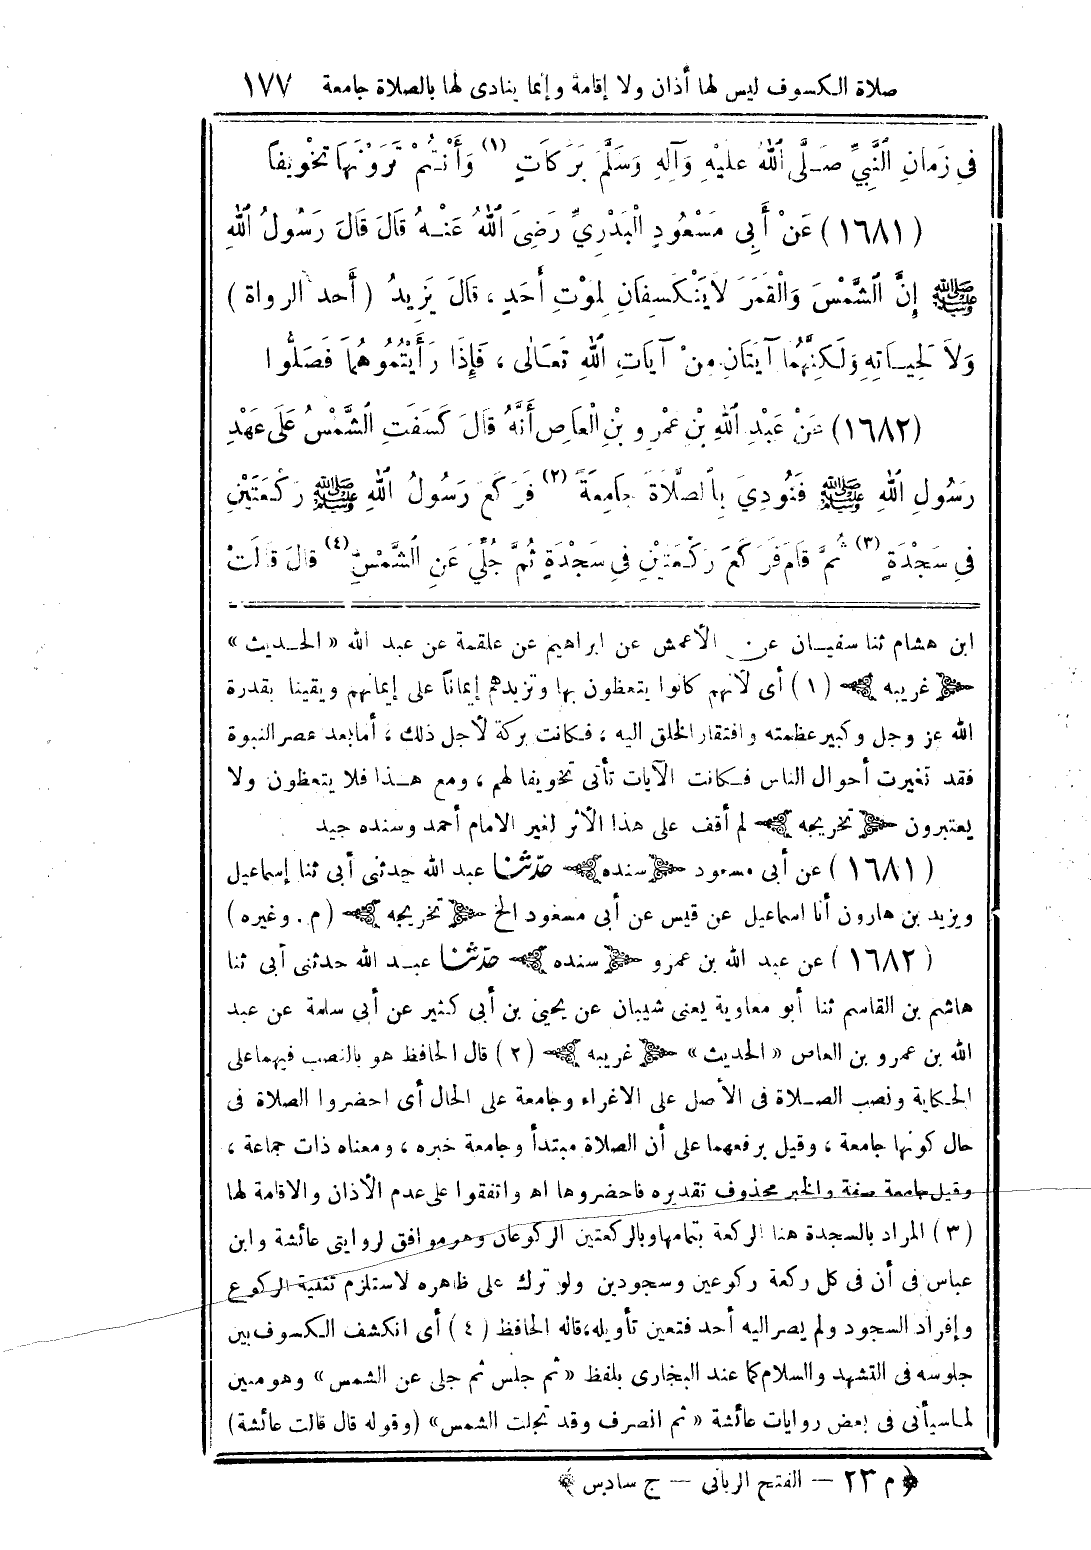 صلاة الكسوف ليس لها أذان ولا إقامة وإنما ينادى لها بالصلاة جامعة ١٧٧
فِى زَمَانِ النَّبِيِّ صَلَّى اللهُ عليْهِ وَآلِهِ وَسَلَّمَ بَرَكَاتٍ (١) وَأَنْتُمْ تَرَوْنَهَا تَخْوِيفاً
(١٦٨١) عَنْ أَبِى مَسْعُودٍ الْبَدْرِيِّ رَضِىَ اللهُ عَنْهُ قَالَ قَالَ رَسُولُ اللهِ
ﷺ إِنَّ الشَّمْسَ وَالْقَمَرَ لاَيَنْكَسِفَانِ لِمَوْتِ أَحَدٍ ، قَالَ يَزِيدُ (أحد الرواة)
وَلاَ لِحَيَاتِهِ وَلَكِنَّهُمَا آيَتَانِ مِنْ آيَاتِ اللهِ تَعَالَى ، فَإِذَا رَأَيْتُمُوهُمَا فَصَلُّوا
(١٦٨٢) عَنْ عَبْدِ اللهِ بْنِ عَمْرِو بْنِ الْعَاصِ أَنَّهُ قَالَ كَسَفَتِ الشَّمْسُ عَلَى عَهْدِ
رَسُولِ اللهِ ﷺ فَنُودِيَ بِالصَّلاَةَ جَامِعَةً (٢) فَرَكَعَ رَسُولُ اللهِ ﷺ رَكْعَتَيْنِ
فِى سَجْدَةٍ (٣) ثُمَّ قَامَ فَرَكَعَ رَكْعَتَيْنِ فِى سَجْدَةٍ ثُمَّ جُلِّيَ عَنِ الشَّمْسِ (٤) قَالَ قَالَتْ
ابن هشام ثنا سفيان عن الأعمش عن ابراهيم عن علقمة عن عبد الله «الحديث»
﴿غريبه﴾ (١) أى لأنهم كانوا يتعظون بها وتزيدهم إيماناً على إيمانهم ويقينا بقدرة
الله عز وجل وكبير عظمته وافتقار الخلق اليه ، فكانت بركة لأجل ذلك ، أما بعد عصر النبوة
فقد تغيرت أحوال الناس فكانت الآيات تأتى تخويفا لهم ، ومع هذا فلا يتعظون ولا
يعتبرون ﴿تخريجه﴾ لم أقف على هذا الأثر لغير الامام أحمد وسنده جيد
(١٦٨١) عن أبى مسعود ﴿سنده﴾ حدّثنا عبد الله حدثنى أبى ثنا إسماعيل
ويزيد بن هارون أنا اسماعيل عن قيس عن أبى مسعود الخ ﴿تخريجه﴾ (م . وغيره)
(١٦٨٢) عن عبد الله بن عمرو ﴿سنده﴾ حدّثنا عبد الله حدثنى أبى ثنا
هاشم بن القاسم ثنا أبو معاوية يعنى شيبان عن يحيى بن أبى كثير عن أبى سلمة عن عبد
الله بن عمرو بن العاص «الحديث» ﴿غريبه﴾ (٢) قال الحافظ هو بالنصب فيهما على
الحكاية ونصب الصلاة فى الأصل على الاغراء وجامعة على الحال أى احضروا الصلاة فى
حال كونها جامعة ، وقيل برفعهما على أن الصلاة مبتدأ وجامعة خبره ، ومعناه ذات جماعة ،
وقيل جامعة صفة والخبر محذوف تقديره فاحضروها اه واتفقوا على عدم الأذان والاقامة لها
(٣) المراد بالسجدة هنا الركعة بتمامها وبالركعتين الركوعان وهو موافق لروايتى عائشة وابن
عباس فى أن فى كل ركعة ركوعين وسجودين ولو ترك على ظاهره لاستلزم تثنية الركوع
وإفراد السجود ولم يصر اليه أحد فتعين تأويله، قاله الحافظ (٤) أى انكشف الكسوف بين
جلوسه فى التشهد والسلام كما عند البخارى بلفظ «ثم جلس ثم جلى عن الشمس» وهو مبين
لما سيأتى فى بعض روايات عائشة «ثم انصرف وقد تجلت الشمس» (وقوله قال قالت عائشة)
﴿م ٢٣ — الفتح الربانى — ج سادس﴾